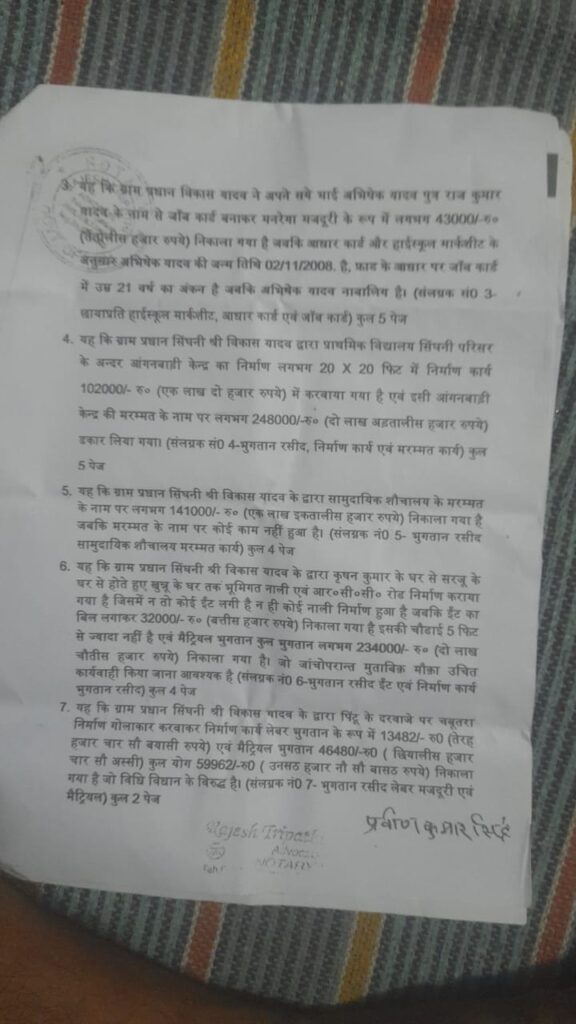 3. यह कि ग्राम प्रधान विकास यादव ने अपने सगे भाई अभिषेक यादव पुत्र राज कुमार
यादव के नाम से जॉब कार्ड बनाकर मनरेगा मजदूरी के रूप में लगभग 43000/-रु०
(तैंतालीस हजार रुपये) निकाला गया है जबकि आधार कार्ड और हाईस्कूल मार्कशीट के
अनुसार अभिषेक यादव की जन्म तिथि 02/11/2008. है, फ्राड के आधार पर जॉब कार्ड
में उम्र 21 वर्ष का अंकन है जबकि अभिषेक यादव नाबालिग है। (संलग्नक सं0 3-
छायाप्रति हाईस्कूल मार्कशीट, आधार कार्ड एवं जॉब कार्ड) कुल 5 पेज
4. यह कि ग्राम प्रधान सिंघनी श्री विकास यादव द्वारा प्राथमिक विद्यालय सिंघनी परिसर
के अन्दर आंगनबाड़ी केन्द्र का निर्माण लगभग 20 X 20 फिट में निर्माण कार्य
102000/- रु० (एक लाख दो हजार रुपये) में करवाया गया है एवं इसी आंगनबाड़ी
केन्द्र की मरम्मत के नाम पर लगभग 248000/-रु० (दो लाख अड़तालीस हजार रुपये)
डकार लिया गया। (संलग्नक सं0 4-भुगतान रसीद, निर्माण कार्य एवं मरम्मत कार्य) कुल
5 पेज
5. यह कि ग्राम प्रधान सिंघनी श्री विकास यादव के द्वारा सामुदायिक शौचालय के मरम्मत
के नाम पर लगभग 141000/- रु० (एक लाख इकतालीस हजार रुपये) निकाला गया है
जबकि मरम्मत के नाम पर कोई काम नहीं हुआ है। (संलग्नक नं0 5- भुगतान रसीद
सामुदायिक शौचालय मरम्मत कार्य) कुल 4 पेज
6. यह कि ग्राम प्रधान सिंघनी श्री विकास यादव के द्वारा कृषन कुमार के घर से सरजू के
घर से होते हुए खुन्नू के घर तक भूमिगत नाली एवं आर०सी०सी० रोड निर्माण कराया
गया है जिसमें न तो कोई ईंट लगी है न ही कोई नाली निर्माण हुआ है जबकि ईंट का
बिल लगाकर 32000/- रु० (बत्तीस हजार रुपये) निकाला गया है इसकी चौडाई 5 फिट
से ज्यादा नहीं है एवं मैट्रियल भुगतान कुल भुगतान लगभग 234000/- रु० (दो लाख
चौतीस हजार रुपये) निकाला गया है। जो जांचोपरान्त मुताबिक मौका उचित
कार्यवाही किया जाना आवश्यक है (संलग्नक नं0 6-भुगतान रसीद ईंट एवं निर्माण कार्य
भुगतान रसीद) कुल 4 पेज
7. यह कि ग्राम प्रधान सिंघनी श्री विकास यादव के द्वारा पिंटू के दरवाजे पर चबूतरा
निर्माण गोलाकार करवाकर निर्माण कार्य लेबर भुगतान के रूप में 13482/- रु0 (तेरह
हजार चार सौ बयासी रुपये) एवं मैट्रियल भुगतान 46480/-रु0 ( छियालीस हजार
चार सौ अस्सी) कुल योग 59962/-रु0 ( उनसठ हजार नौ सौ बासठ रुपये) निकाला
गया है जो विधि विधान के विरुद्ध है। (संलग्नक नं0 7- भुगतान रसीद लेबर मजदूरी एवं
मैट्रियल) कुल 2 पेज
प्रवीण कुमार सिंह
Rajesh Tripathi
NOTARY